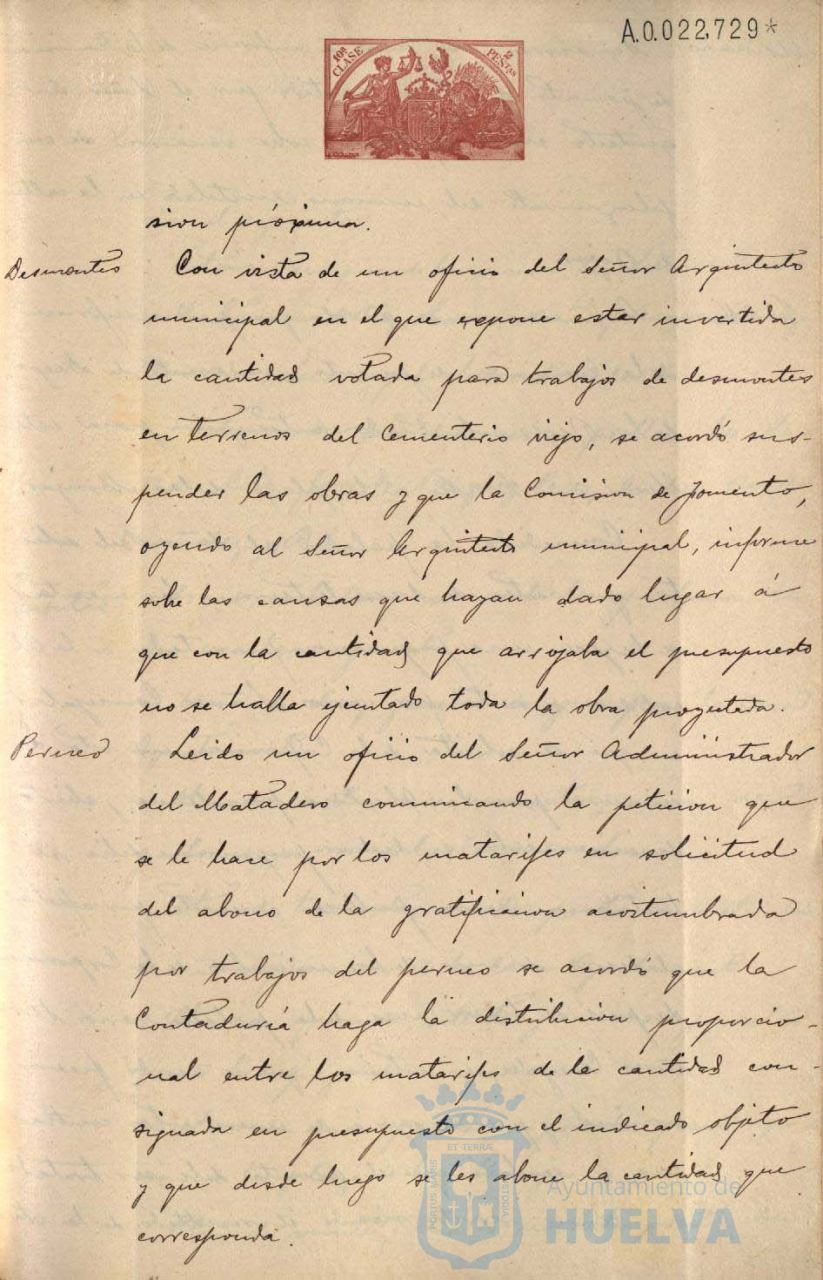 A.0.022,729*
10ª CLASE
2 PESTAS
sion próxima.
Desmontes
Con vista de un oficio del Señor Arquitecto
municipal en el que expone estar invertida
la cantidad votada para trabajos de desmontes
en terrenos del Cementerio viejo, se acordó sus-
pender las obras y que la Comision de Fomento,
oyendo al Señor Arquitecto municipal, informe
sobre las causas que hayan dado lugar á
que con la cantidad que arrojaba el presupuesto
no se halla ejecutado toda la obra proyectada.
Perneo
Leido un oficio del Señor Administrador
del Matadero comunicando la peticion que
se le hace por los matarifes en solicitud
del abono de la gratificacion acostumbrada
por trabajos del perneo se acordó que la
Contaduría haga la distribucion proporcio-
nal entre los matarifes de la cantidad con-
signada en presupuesto con el indicado objeto
y que desde luego se les abone la cantidad que
corresponda.
ET TERRÆ
PORTUS MARIS
CUSTODIA
Ayuntamiento de
HUELVA